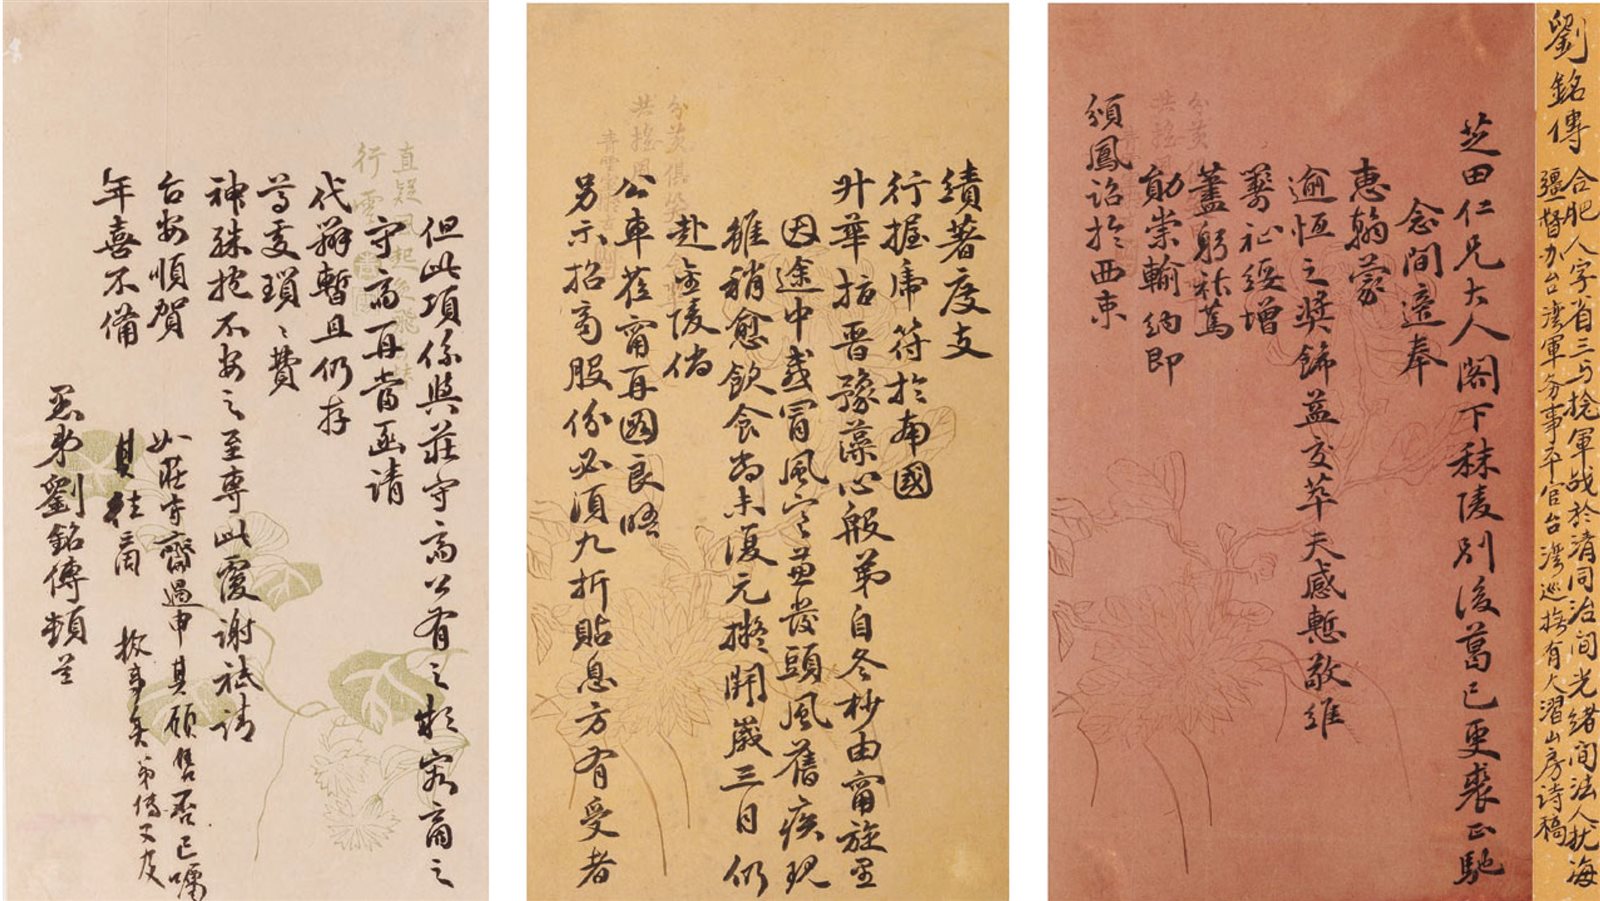 劉銘傳
合肥人字省三与捻軍战於清同治间光绪间法人扰海
疆督办台湾軍务事平官台湾巡撫有大潛山房詩稿
芝田仁兄大人閣下秣陵別後葛已更裘正馳
念間適奉
惠翰蒙
逾恒之奬飾益交萃夫感慙敬維
籌祉綏增
藎躬祜篤
勛崇輸納即
頒鳳詔於西東
績著度支
行握虎符於南國
升華拮晋豫藻心殷弟自冬杪由甯旋里
因途中感冒風寒兼發頭風舊疾現
雖稍愈飲食尚未復元擬開歲三月仍
赴金陵倘
公車蒞甯再圖良晤
另示招商股份必須九折貼息方有受者
但此項係與莊守商公有之款容商之
守商再當函請
代辦暫且仍存
尊處瑣瑣費
神殊抱不安之至專此覆謝祗請
台安順賀
年喜不備
愚弟劉銘傳頓首
如莊守齋過申其願售否已囑
其往商
弟傳又及
直疑風起
行雲
分黄俱笑
共搖風